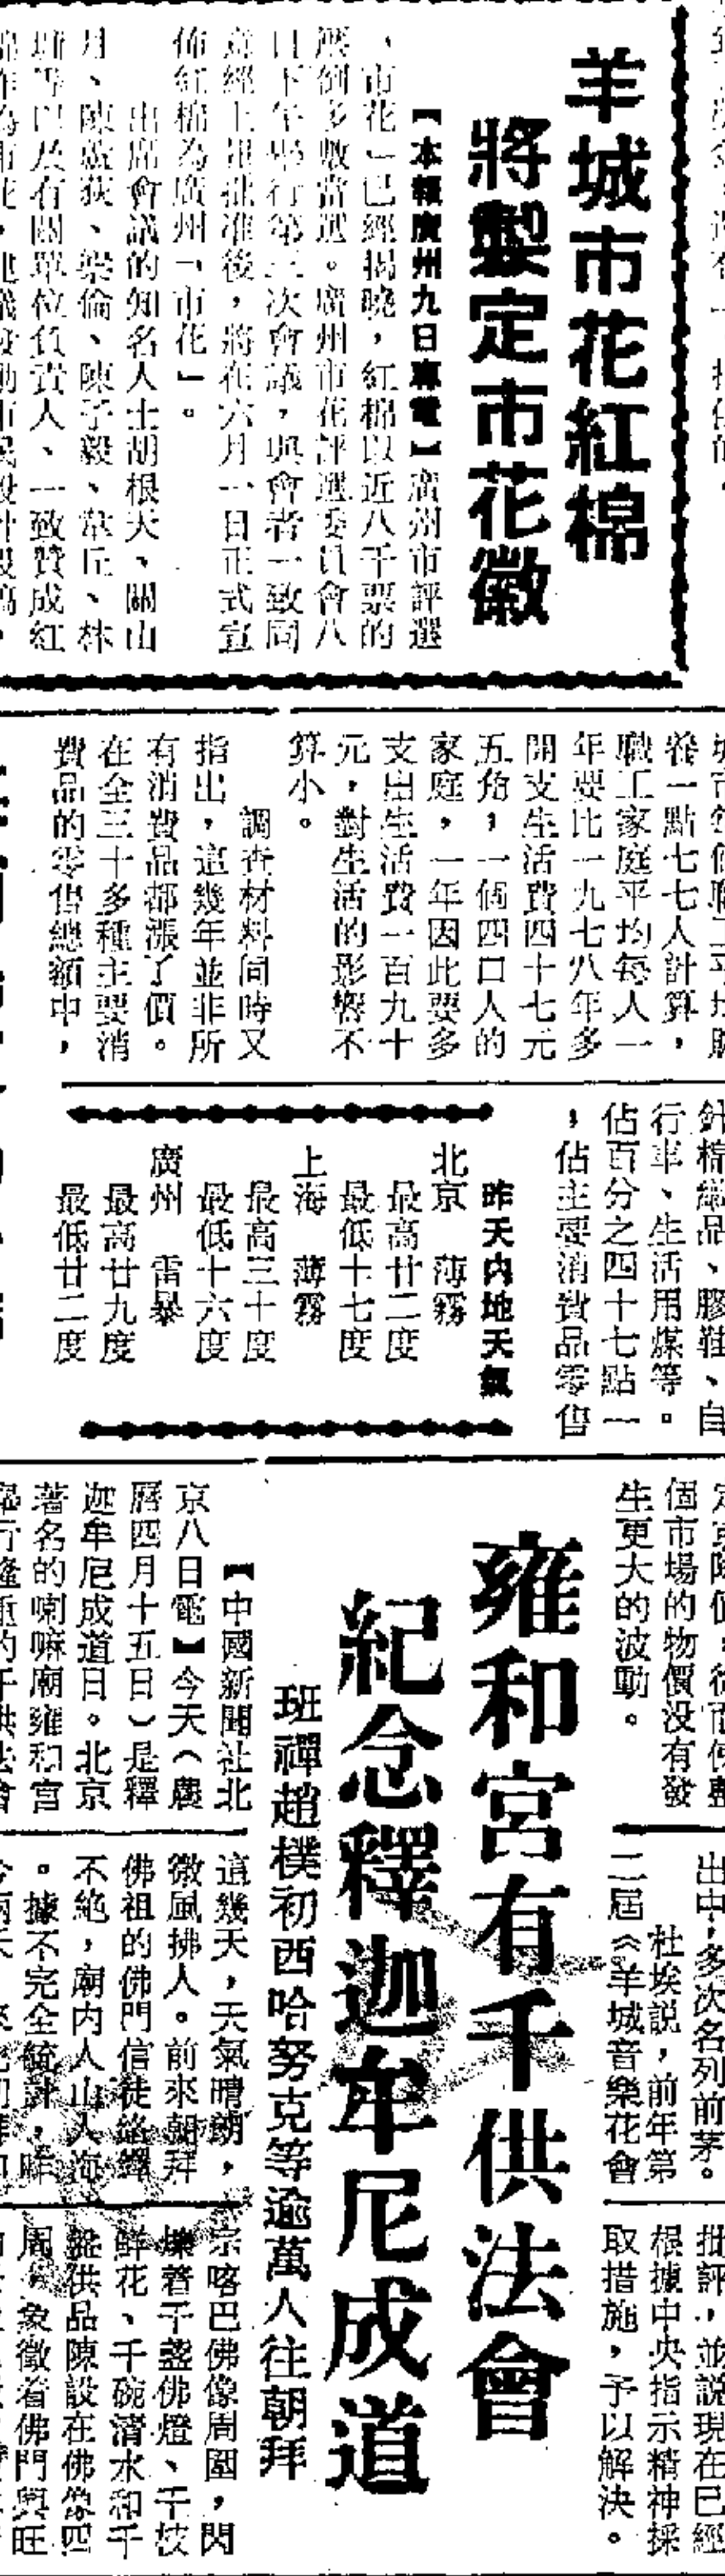 羊城市花紅棉
將製定市花徽
【本報廣州九日專電】廣州市評選
「市花」已經揭曉，紅棉以近八千票的
壓倒多數當選。廣州市花評選委員會八
日下午舉行第三次會議，與會者一致同
意經上報批准後，將在六月一日正式宣
佈紅棉為廣州「市花」。
出席會議的知名人士胡根天、關山
月、陳蘆荻、梁倫、陳子毅、韋丘、林
等以及有關單位負責人、一致贊成紅
棉作為市花，建議發動市民設計
養一點七七人計算，
職工家庭平均每人一
年要比一九七八年多
開支生活費四十七元
五角，一個四口人的
家庭，一年因此要多
支出生活費一百九十
元，對生活的影響不
算小。
調查材料同時又
指出，這幾年並非所
有消費品都漲了價。
在全三十多種主要消
費品的零售總額中，
針棉織品、膠鞋、自
行車、生活用煤等。
佔百分之四十七點一
，佔主要消費品零售
昨天內地天氣
北京　薄霧
最高廿二度
最低十七度
上海　薄霧
最高三十度
最低十六度
廣州　雷暴
最高廿九度
最低廿二度
個市場的物價没有發
生更大的波動。
出中，多次名列前茅。
杜埃説，前年第
二屆《羊城音樂花會
批評，並説現在已經
根據中央指示精神採
取措施，予以解決。
雍和宮有千供法會
紀念釋迦牟尼成道
班禪趙樸初西哈努克等逾萬人往朝拜
【中國新聞社北
京八日電】今天（農
曆四月十五日）是釋
迦牟尼成道日。北京
著名的喇嘛廟雍和宮
舉行隆重的千供法會
這幾天，天氣晴朗，
微風拂人。前來朝拜
佛祖的佛門信徒絡繹
不絶，廟内人山人海
。據不完全統計，昨
今兩天
宗喀巴佛像周圍，閃
爍着千盞佛燈、千枝
鮮花、千碗清水和千
盤供品陳設在佛像四
周，象徵着佛門興旺